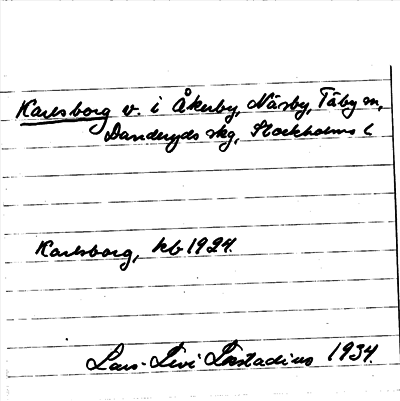 Karlsborg v. i Åkerby, Näsby, Täby sn,
Danderyds skg, Stockholms l
Karlsborg, kb 1924.
Lars-Levi Læstadius 1934.